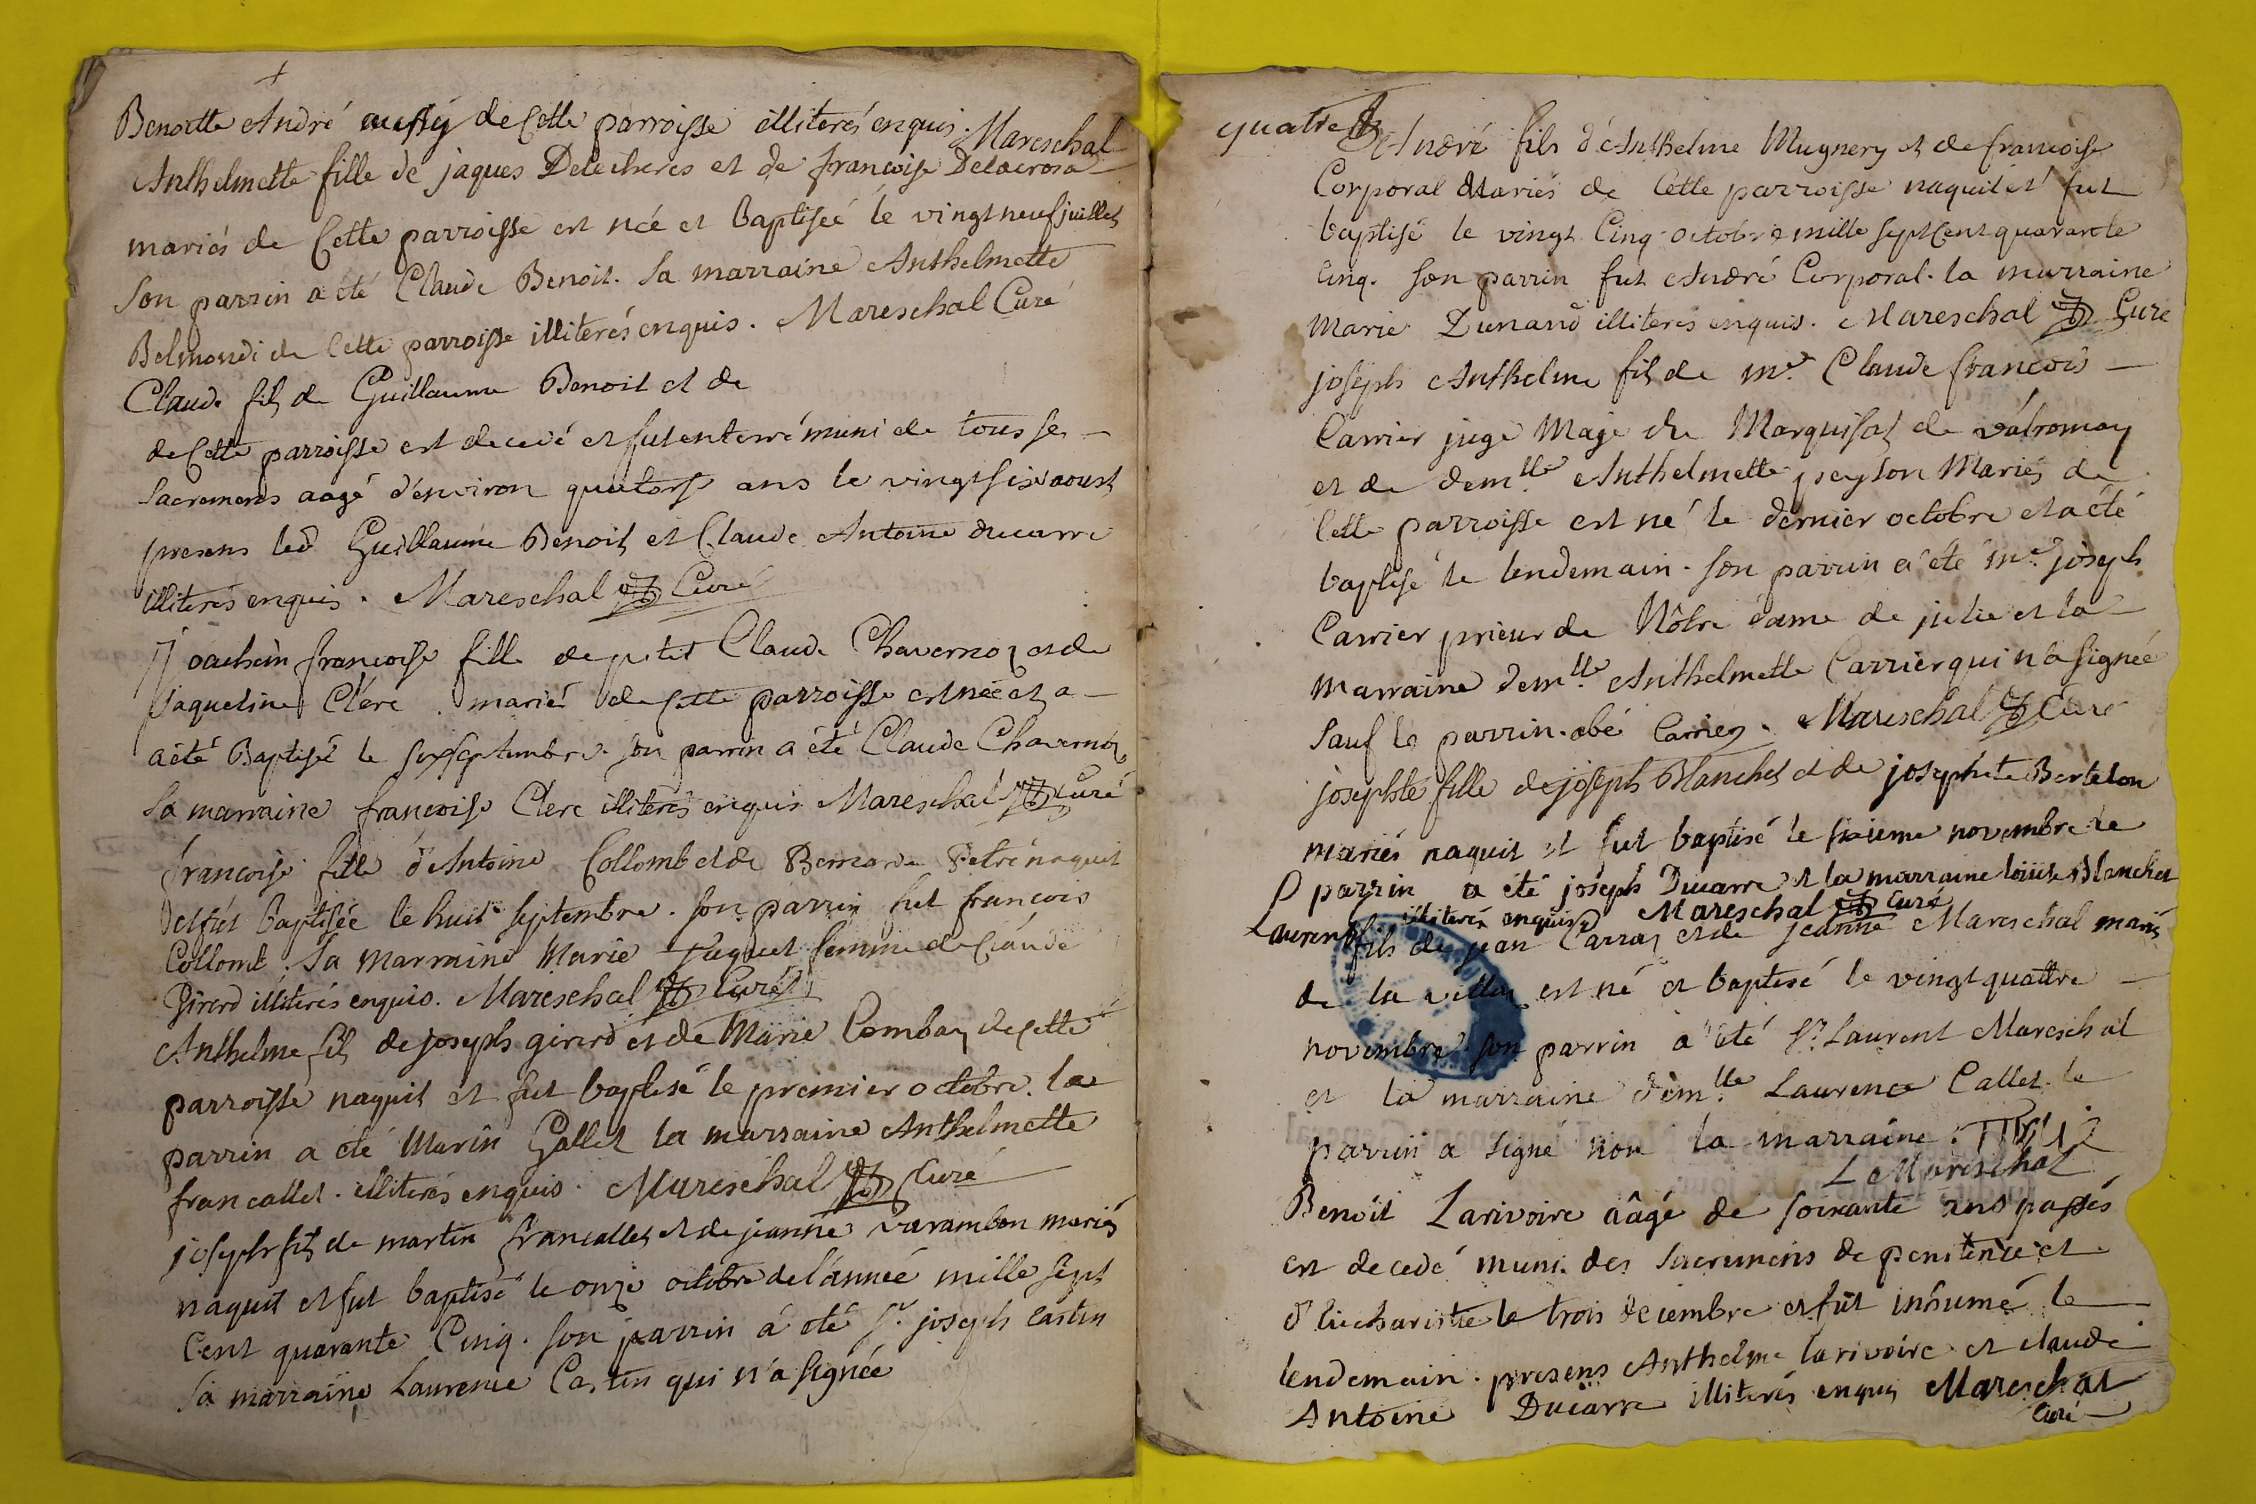 Benoitte André aussy de Cette parroisse illiterés enquis. Mareschal
Anthelmette fille de jaques Delecheres et de françoise Delacrosa
mariés de Cette parroisse est née et Baptiseé le vingt neuf juillet
son parrin a été Claude Benoit. Sa marraine Anthelmette
Belmondi de Cette parroisse illiterés enquis. Mareschal Curé
Claude fils de Guillaume Benoit et de
de Cette parroisse est decedé et fut enterré muni de tous se
sacremens aagé d'environ quatorse ans le vingt six aoust
presens led Guillaume Benoit et Claude Antoine ducarre
illiterés enquis. Mareschal Curé
Joachim françoise fille de petit Claude Chavernoz et de
Jaqueline Clerc mariés de Cette parroisse est née et a
a été Baptisée le six septembre. son parrin a été Claude Chavernoz
sa marraine françoise Clerc illiterés enquis Mareschal Curé
françoise fille d'Antoine Collomb et de Bernarde naquit
et fut baptisée le huit septembre. son parrin fut françois
Collomb. Sa marraine Marie Juguet femme de Claude
Girerd illiterés enquis. Mareschal Curé
Anthelme fils de joseph girerd et de Marie Combaz de Cette
parroisse naquit et fut baptisé le premier octobre. le
parrin a été Marin Gallet la marraine Anthelmette
francallet. illiterés enquis. Mareschal Curé
joseph fils de martin francallet et de jeanne varambon mariés
naquit et fut baptisé le onze octobre de l'année mille sept
Cent quarante Cinq. son parrin á été Sr. joseph Castin
sa marraine Laurence Castin qui n'a signée
quatre
André fils d'Anthelme Mugnery et de françoise
Corporal Mariés de Cette parroisse naquit et fut
baptisé le vingt Cinq octobre mille sept Cent quarante
Cinq. son parrin fut André Corporal. la marraine
Marie Dunand illiterés enquis. Mareschal Curé
joseph Anthelme fils de me. Claude françois
Carrier juge Maje du Marquisat de valromay
et de demlle Anthelmette peyson Mariés de
Cette parroisse est né le dernier octobre et a été
baptisé le lendemain. son parrin a été me. joseph
Carrier prieur de Nôtre dame de et la
marraine demlle. Anthelmette Carrier qui n'a signée
sauf le parrin. abé Carrier. Mareschal Curé
josephte fille de joseph Blanchet et de josephte Bertelon
mariés naquit et fut baptisé le sixieme novembre le
parrin a été joseph Ducarre et la marraine Blanchet
illiterés enquis Mareschal Curé
Laurent fils de jean Carraz et de jeanne Mareschal mariés
de la est né et baptisé le vingt quattre
novembre son parrin a été Sr. Laurent Mareschal
et la marraine demlle. Laurence Callet. le
parrin a signé non la marraine.
L Mareschal
Benoit Larivoire aâgé de soixante ans passés
est decedé muni des sacremens de penitence et
d'Eucharistie le trois decembre et fut inhumé le
lendemain. presens Anthelme larivoire et claude
Antoine Ducarre illiterés enquis Mareschal
Curé